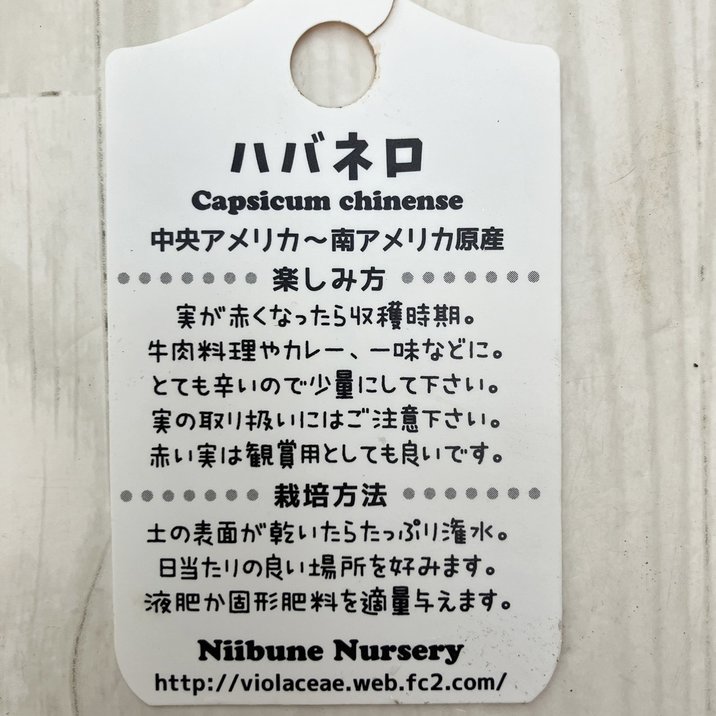 ハバネロ
Capsicum chinense
中央アメリカ～南アメリカ原産
楽しみ方
実が赤くなったら収穫時期。
牛肉料理やカレー、一味などに。
とても辛いので少量にして下さい。
実の取り扱いにはご注意下さい。
赤い実は観賞用としても良いです。
栽培方法
土の表面が乾いたらたっぷり潅水。
日当たりの良い場所を好みます。
液肥か固形肥料を適量与えます。
Niibune Nursery
http://violaceae.web.fc2.com/